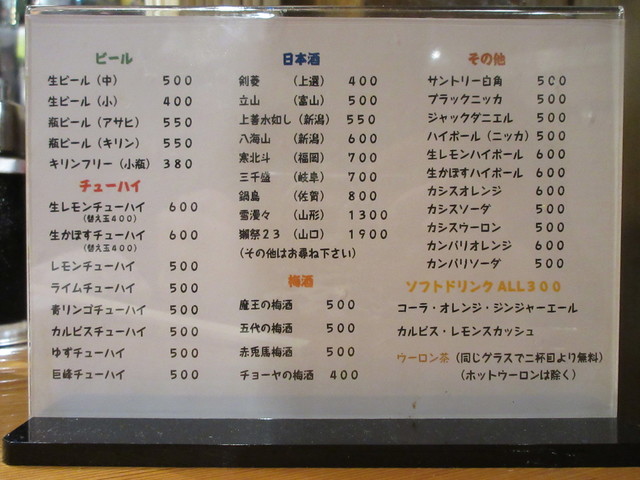 ビール
生ビール（中） 500
生ビール（小） 400
瓶ビール（アサヒ） 550
瓶ビール（キリン） 550
キリンフリー（小瓶） 380
チューハイ
生レモンチューハイ 600
（替え玉400）
生かぼすチューハイ 600
（替え玉400）
レモンチューハイ 500
ライムチューハイ 500
青リンゴチューハイ 500
カルピスチューハイ 500
ゆずチューハイ 500
巨峰チューハイ 500
日本酒
剣菱 （上選） 400
立山 （富山） 500
上善水如し（新潟） 550
八海山 （新潟） 600
寒北斗 （福岡） 700
三千盛 （岐阜） 700
鍋島 （佐賀） 800
雪漫々 （山形） 1300
獺祭23 （山口） 1900
（その他はお尋ね下さい）
梅酒
魔王の梅酒 500
五代の梅酒 500
赤兎馬梅酒 500
チョーヤの梅酒 400
その他
サントリー白角 500
ブラックニッカ 500
ジャックダニエル 500
ハイボール（ニッカ） 500
生レモンハイボール 600
生かぼすハイボール 600
カシスオレンジ 600
カシスソーダ 500
カシスウーロン 500
カンパリオレンジ 600
カンパリソーダ 500
ソフトドリンク ALL300
コーラ・オレンジ・ジンジャーエール
カルピス・レモンスカッシュ
ウーロン茶（同じグラスで二杯目より無料）
（ホットウーロンは除く）